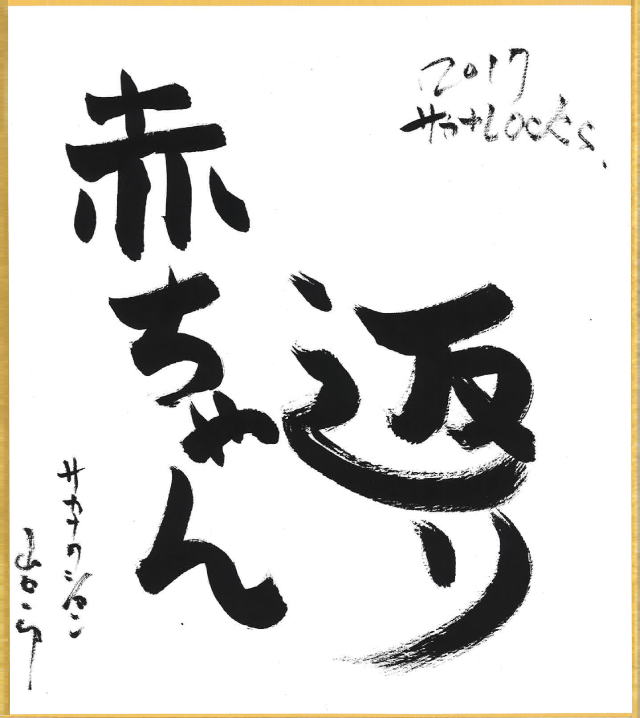 2017
サカナLOCKS.
返り
赤ちゃん
サカナクション